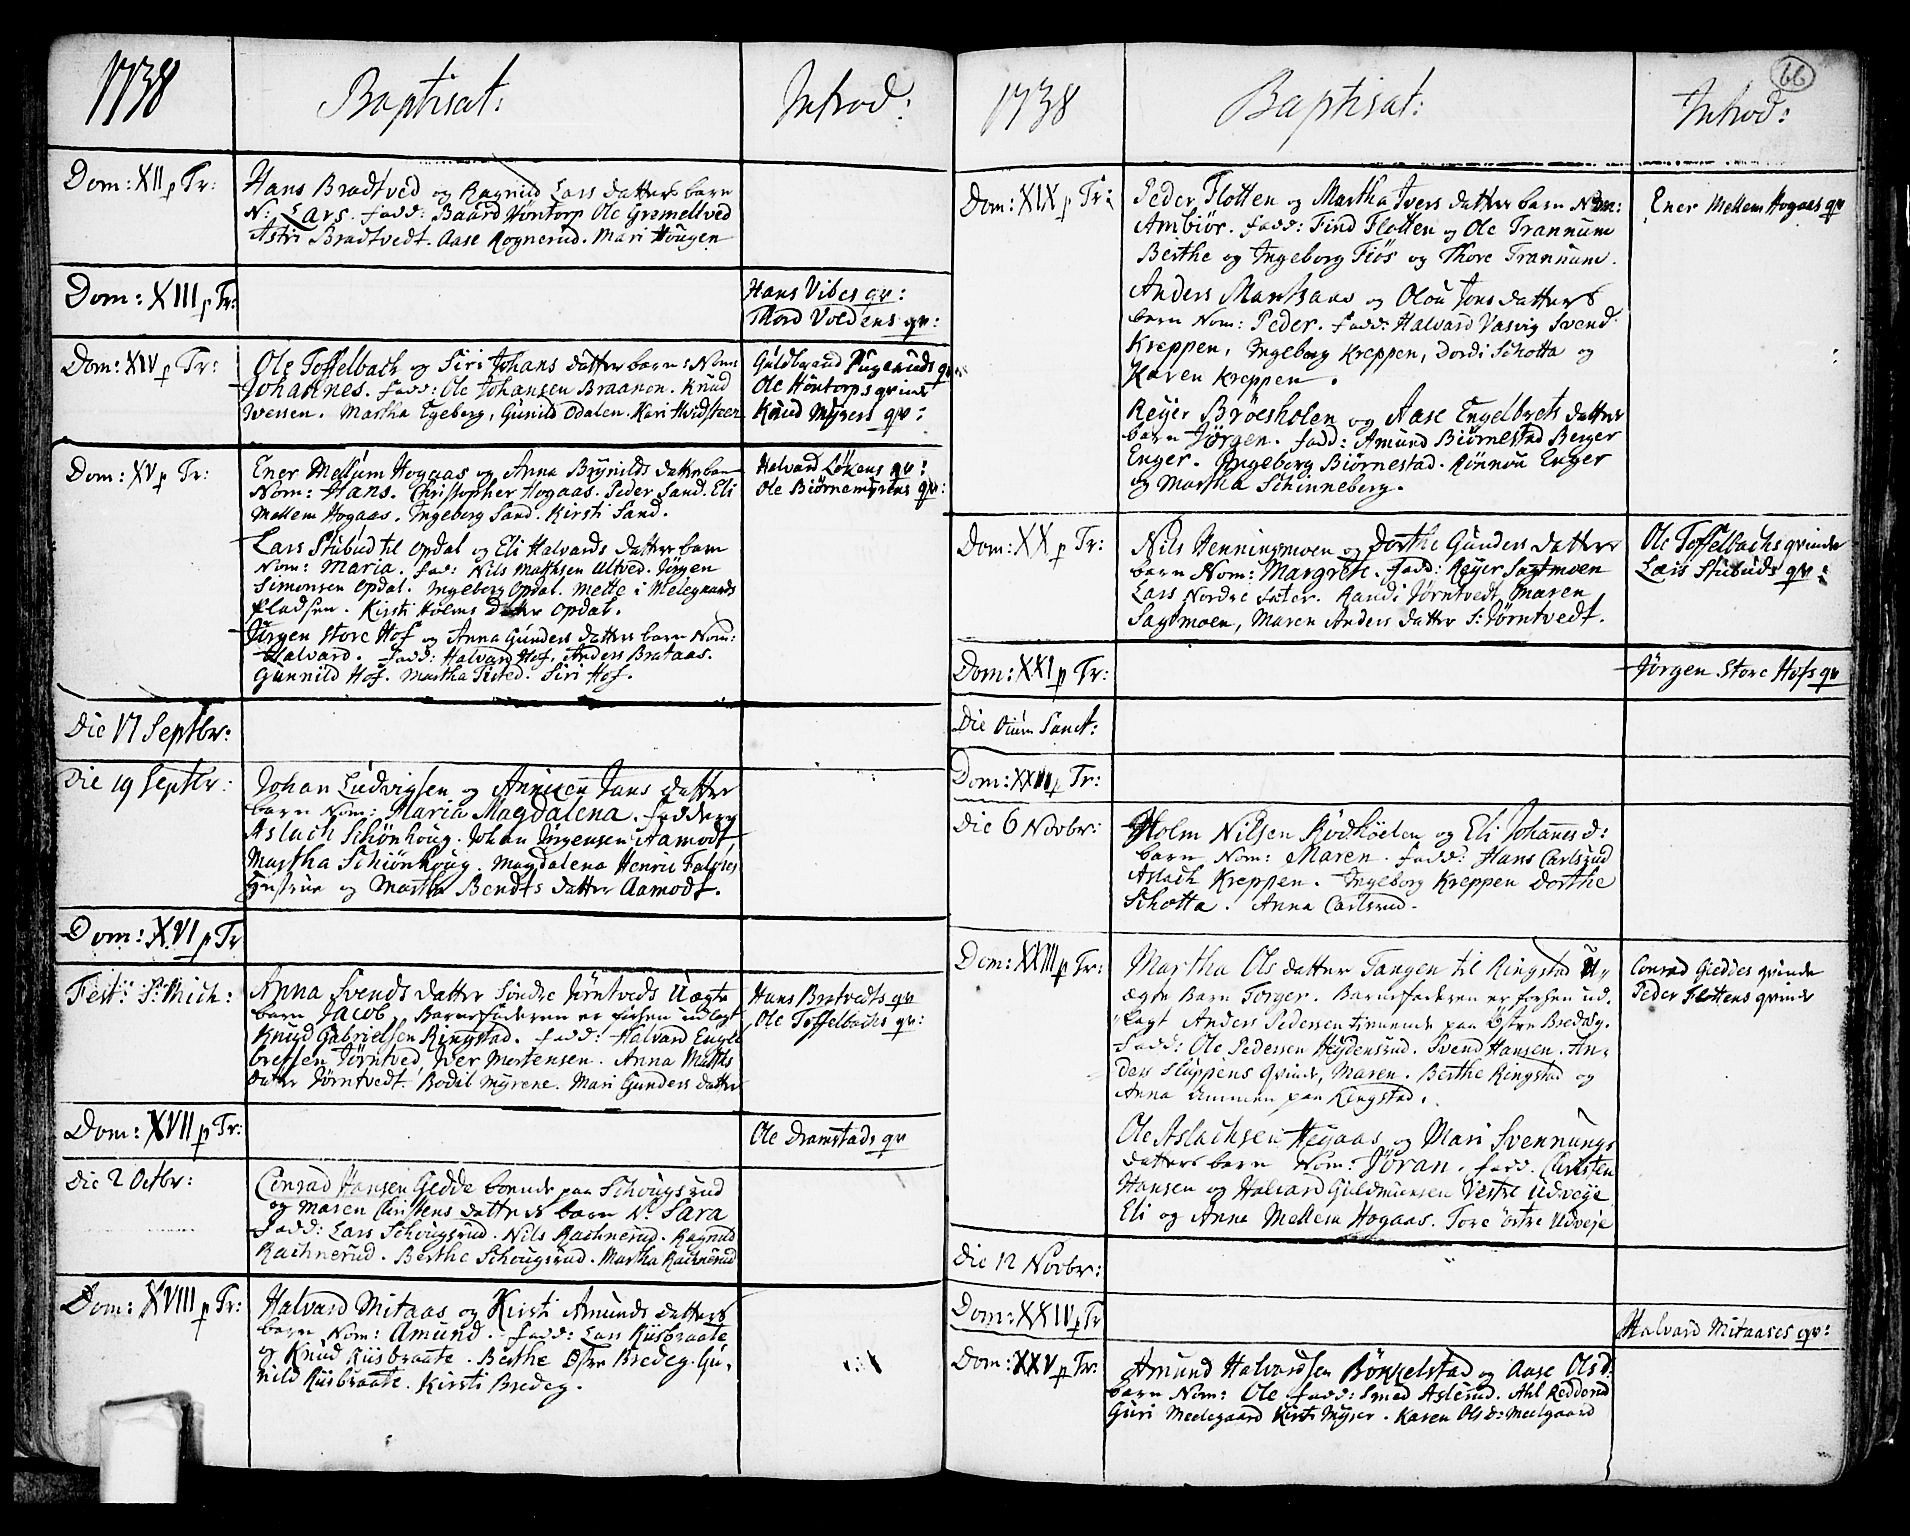 1738
Baptisat:
Introd:
Dom: XII p Tr:
Hans Bradtved og Ragnild Lars datters barn
N: Lars. fadd: Baard Höntorp Ole Gromeltved
Astri Bradtvedt. Aase Rognerud. Mari Hougen
Dom: XIII p Tr:
Hans Vibes qv:
Thord Voldens qv:
Dom: XIV p Tr:
Ole Toffelbach og Siri Johans datter barn: Nom:
Johannes. fadd: Ole Johansen Braanon. Knud
Wessen. Martha Egeberg, Gunild Odalen. Kari Hvidsteen
Guldbrand Pugeruds qv:
Ole Höntorps qvinde
Knud Myrers qv:
Dom: XV p Tr:
Ener Mellum Hogaas og Anna Brynilds datter barn
Nom: Hans. Christopher Hogaas. Peder Sand. Eli
Mellem Hogaas. Ingeborg Sand. Kirsti Sand.
Halvard Lökens qv:
Ole Biörnemyrens qv:
Lars Stubud til Opdal og Eli Halvards datters barn
Nom: Maria. fad: Nils Mathisen Ultved. Jörgen
Simonsen Opdal. Ingeborg Opdal. Mette i Melegaards
Pladsen. Kirsti Holms dater Opdal.
Jörgen Store Hof og Anna Gunders datters barn Nom:
Halvard. fadd: Halvard Hof. Anders Brataas.
Gunnild Hof. Martha Tisted. Siri Hof.
Die 17 Septbr:
Die 19 Septbr:
Johan Ludvigsen og Anniken Jans datter
barn Nom: Maria Magdalena. faddere
Aslach Schönhoug. Johan Jörgensen Aamodt
Martha Schiönhoug. Magdalena Henric Falches
Hustrue og Martha Bendts datter Aamodt.
Dom: XVI p Tr
Fest: S: Mich:
Anna Svends datter Söndre Jörntveds Uægte
barn Jacob. Barnefaderen er forhen udlagt
Knud Gabrielsen Ringstad. fadd: Halvard Engle
bretsen Jörntved. Iver Mortensen. Anna Maths
datter Jörntvedt. Bodil Myrene. Mari Gunders datter
Hans Bratvedts qv
Ole Toffelbachs qv:
Dom: XVII p Tr:
Ole Dramstads qv
Die 2 Octbr:
Conrad Hansen Gedde boende paa Schougsrud
og Maren Christens datters barn N: Sara
fadd: Lars Schougsrud. Nils Rachnerud. Ragnild
Rachnerud. Berthe Schougsrud. Martha Rachnerud
Dom: XVIII p Tr:
Halvard Mitaas og Kirsti Amunds datters
barn Nom: Amund. fadd: Lars Riisbraate
og Knud Riisbraate. Berthe Östre Bredeg. Gu-
nild Riisbraate. Kirsti Bredeg.
66
1738
Baptisat:
Introd:
Dom: XIX p Tr:
Peder Flotten og Martha Ivers datters barn Nom:
Ambiör. fadd: Find Flotten og Ole Trannum
Berthe og Ingeborg Fiös og Thore Trannum.
Ener Mellem Hogaas qv
Anders Mankaas og Olou Jons datters
barn Nom: Peder. fadd: Halvard Vasvig Svend
Kreppen, Ingeborg Kreppen, Dordi Schotta og
Karen Kreppen.
Reyer Bröesholen og Aase Engelbrets datters
barn Jörgen. fadd: Amund Biörnestad Berger
Enger. Ingeborg Biörnestad. Rönnou Enger
og Martha Schinneberg.
Dom: XX p Tr:
Nils Henningsmoen og Dorthe Gunders datters
barn Nom: Margreth. fadd: Reyer Sagtmoen
Lars Nordre Sater. Randi Jörntvedt. Maren
Sagsmoen, Maren Anders datter S: Jörntvedt.
Ole Toffelbachs qvinde
Lars Stubuds qv:
Dom: XXI p Tr:
Jörgen Store Hofs qv
Die Oium Sanct:
Dom: XXII p Tr:
Die 6 Novbr:
Holm Nilsen Rödköelen og Eli Johannes d:
barn Nom: Maren. fadd: Hans Carlsrud
Aslach Kreppen. Ingeborg Kreppen Dorthe
Schotta. Anna Carlsrud.
Dom: XXIII p Tr:
Martha Ols datter Tangen til Ringstad U-
ægte Barn Torger. Barnefaderen er forhen ud-
lagt Anders Pedersen tienende paa Östre Bredeg.
fadd: Ole Pedersen Heydensrud. Svend Hansen. An-
ders Sluppens qvinde, Maren. Berthe Ringstad og
Anna Ammen paa Ringstad.
Conrad Gieddes qvinde
Peder Flottens qvinde
Ole Aslachsen Heyaas og Mari Svennungs
datters barn Nom: Jöran. fadd. Christen
Hansen og Halvard Guldmunsen Vestre Udveje
Eli og Anna Mellem Hogaas. Tore östre Udveje
Die 12 Novbr:
Dom: XXIV p Tr
Halvard Mitaases qv:
Dom: XXV p Tr:
Amund Halvardsen Bönkelstad og Aase Ols d:
barn Nom: Ole fadd: Smed Aslerud. Ahl Redderud
Guri Medegaard Kirsti Myrer. Karen Ols d: Meelgaard